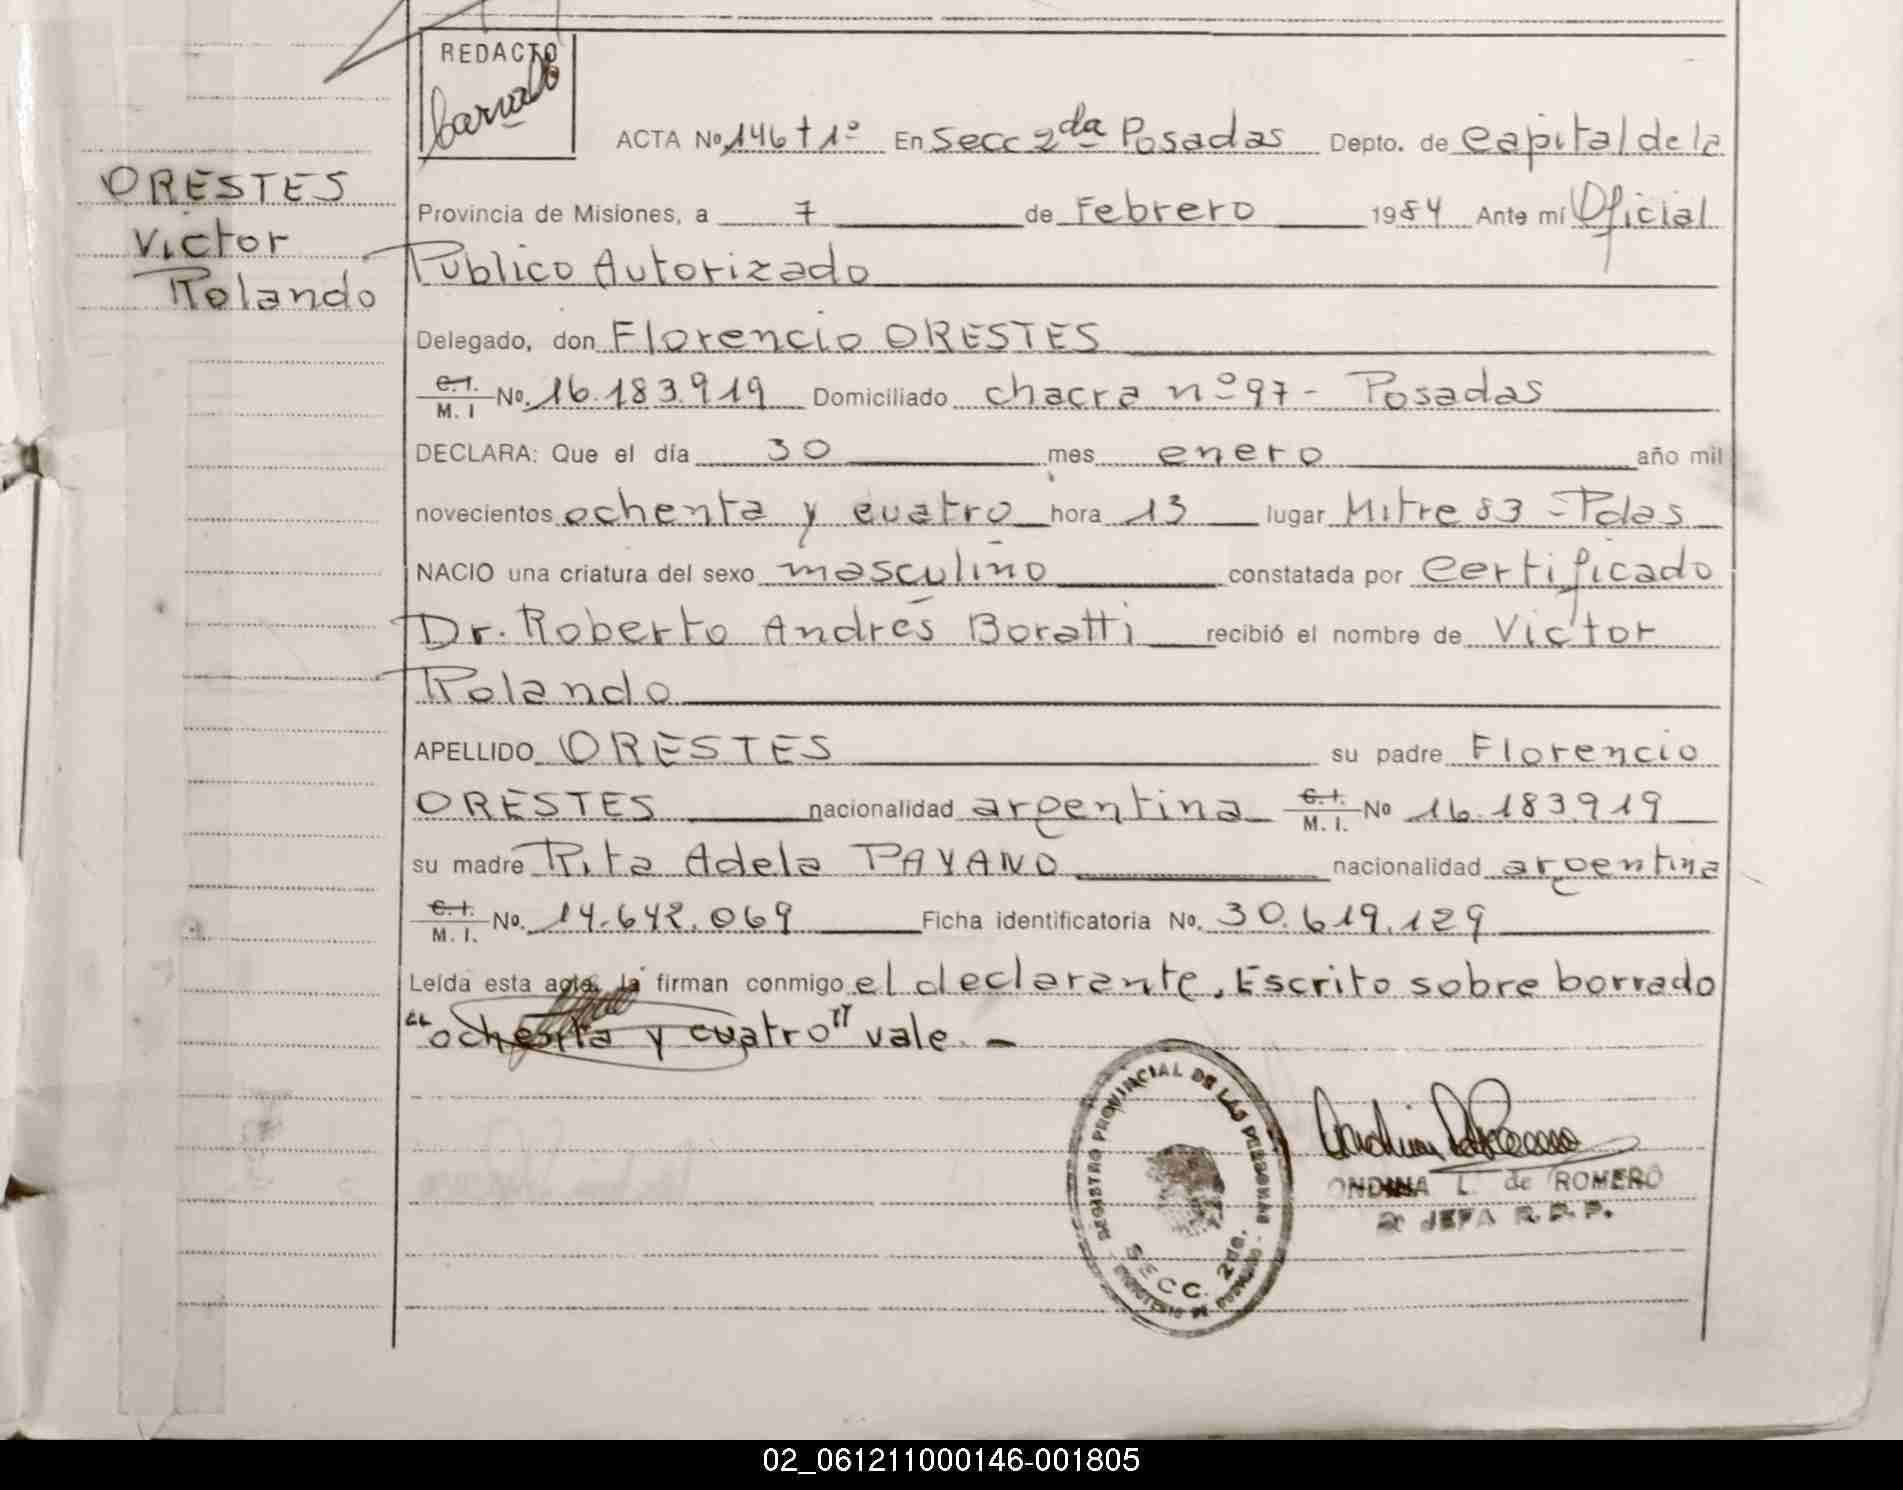 REDACTO
ACTA Nº 146 t 1º En Secc 2da Posadas Depto. de Capital de la
ORESTES
Victor
Rolando
Provincia de Misiones, a 7 de Febrero 1984 Ante mí Oficial
Público Autorizado
Delegado, don Florencio ORESTES
C.I.
M. I No. 16.183.919 Domiciliado chacra nº 97 - Posadas
DECLARA: Que el día 30 mes enero año mil
novecientos ochenta y cuatro hora 13 lugar Mitre 83 - Pdas
NACIO una criatura del sexo masculino constatada por Certificado
Dr. Roberto Andrés Boratti recibió el nombre de Victor
Rolando
APELLIDO ORESTES su padre Florencio
ORESTES nacionalidad argentina C.I.
M. I. No 16.183.919
su madre Rita Adela PAYANO nacionalidad argentina
C.I.
M. I. No. 14.642.069 Ficha identificatoria No. 30.619.129
Leída esta acta, la firman conmigo el declarante, Escrito sobre borrado
"ochenta y cuatro" vale. -
REGISTRO PROVINCIAL DE LAS PERSONAS
SECC. 2da.
ONDINA L. de ROMERO
2º JEFA R.P.P.
02_061211000146-001805